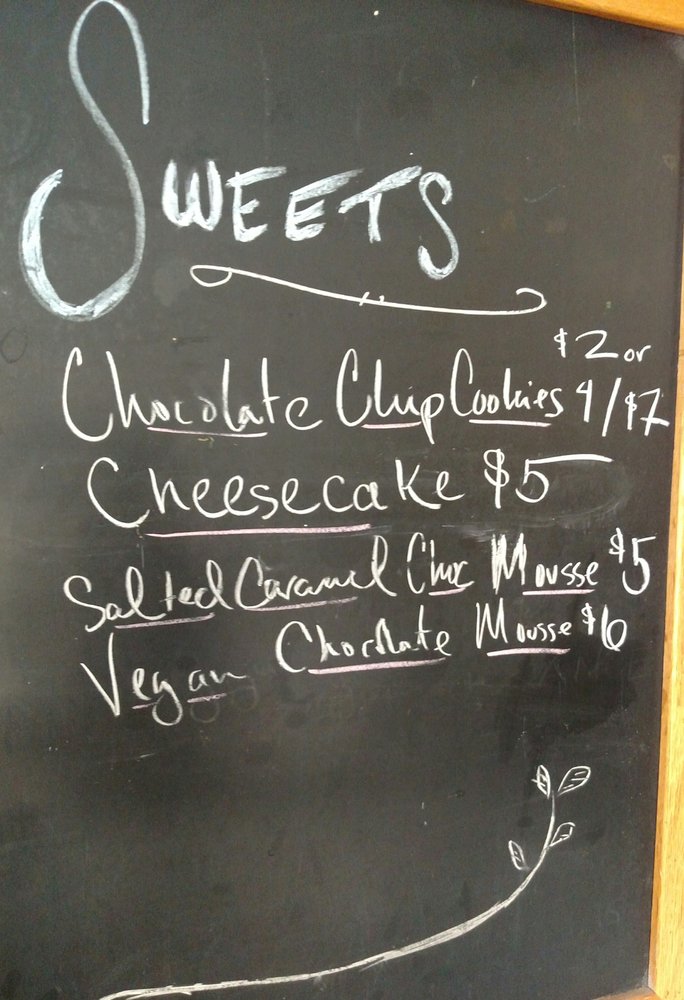 SWEETS
$2 or
Chocolate Chip Cookies 4/$7
Cheesecake $5
Salted Caramel Choc Mousse $5
Vegan Chocolate Mousse $6